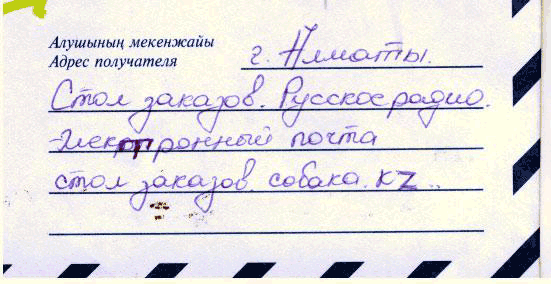 Алушының мекенжайы
Адрес получателя г. Алматы.
Стол заказов. Русское радио.
электронный почта
стол заказов. собака. кz..